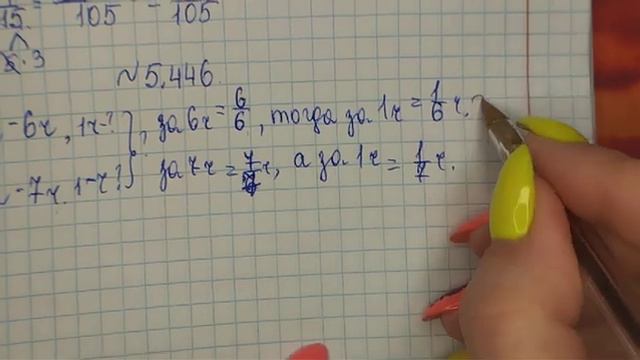 15 = 105 - 105
3
№5.446.
-6ч, 1ч-? }, за 6ч = 6/6, тогда за 1ч = 1/6 ч.
-7ч. 1ч-? } за 7ч = 7/7 ч, а за 1ч = 1/7 ч.